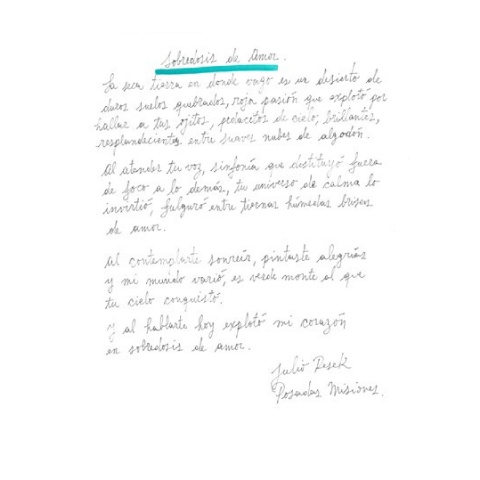 Sobredosis de Amor.
La seca tierra en donde vago es un desierto de
duros suelos quebrados, roja pasión que explotó por
hallar a tus ojitos, pedacitos de cielo, brillantes,
resplandecientes entre suaves nubes de algodón.
Al atender tu voz, sinfonía que destituyó fuera
de foco a lo demás, tu universo de calma lo
invirtió, fulguró entre tiernas húmedas brisas
de amor.
Al contemplarte sonreír, pintaste alegrías
y mi mundo varió, es verde monte al que
tu cielo conquistó.
Y al hablarte hoy explotó mi corazón
en sobredosis de amor.
Julio Pesek
Posadas Misiones.